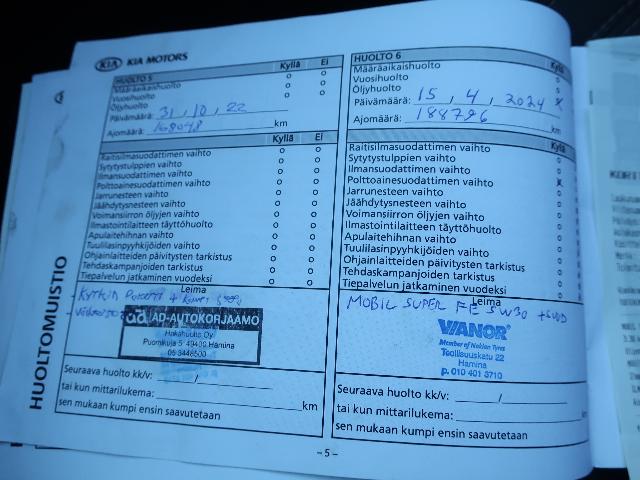 KIA KIA MOTORS
HUOLTO 5 Kyllä Ei
Määräaikaishuolto o o
Vuosihuolto o o
Öljyhuolto o o
Päivämäärä: 31, 10, 22
Ajomäärä: 168048 km
Kyllä Ei
Raitisilmasuodattimen vaihto o o
Sytytystulppien vaihto o o
Ilmansuodattimen vaihto o o
Polttoainesuodattimen vaihto o o
Jarrunesteen vaihto o o
Jäähdytysnesteen vaihto o o
Voimansiirron öljyjen vaihto o o
Ilmastointilaitteen täyttöhuolto o o
Apulaitehihnan vaihto o o
Tuulilasinpyyhkijöiden vaihto o o
Ohjainlaitteiden päivitysten tarkistus o o
Tehdaskampanjoiden tarkistus o o
Tiepalvelun jatkaminen vuodeksi o o
Leima
ad AD-AUTOKORJAAMO
Hakahuolto Oy
Puomikuja 5, 49400 Hamina
05 3448500
Seuraava huolto kk/v: /
tai kun mittarilukema: km
sen mukaan kumpi ensin saavutetaan
HUOLTOMUISTIO
HUOLTO 6 Kyllä
Määräaikaishuolto o
Vuosihuolto o
Öljyhuolto x
Päivämäärä: 15, 4, 2024
Ajomäärä: 188796 km
Kyllä
Raitisilmasuodattimen vaihto o
Sytytystulppien vaihto o
Ilmansuodattimen vaihto o
Polttoainesuodattimen vaihto x
Jarrunesteen vaihto o
Jäähdytysnesteen vaihto o
Voimansiirron öljyjen vaihto o
Ilmastointilaitteen täyttöhuolto o
Apulaitehihnan vaihto o
Tuulilasinpyyhkijöiden vaihto o
Ohjainlaitteiden päivitysten tarkistus o
Tehdaskampanjoiden tarkistus o
Tiepalvelun jatkaminen vuodeksi o
Leima
MOBIL SUPER FE 5W30
VIANOR
Member of Nokian Tyres
Teollisuuskatu 22
Hamina
p. 010 401 3710
Seuraava huolto kk/v: /
tai kun mittarilukema:
sen mukaan kumpi ensin saavutetaan
- 5 -